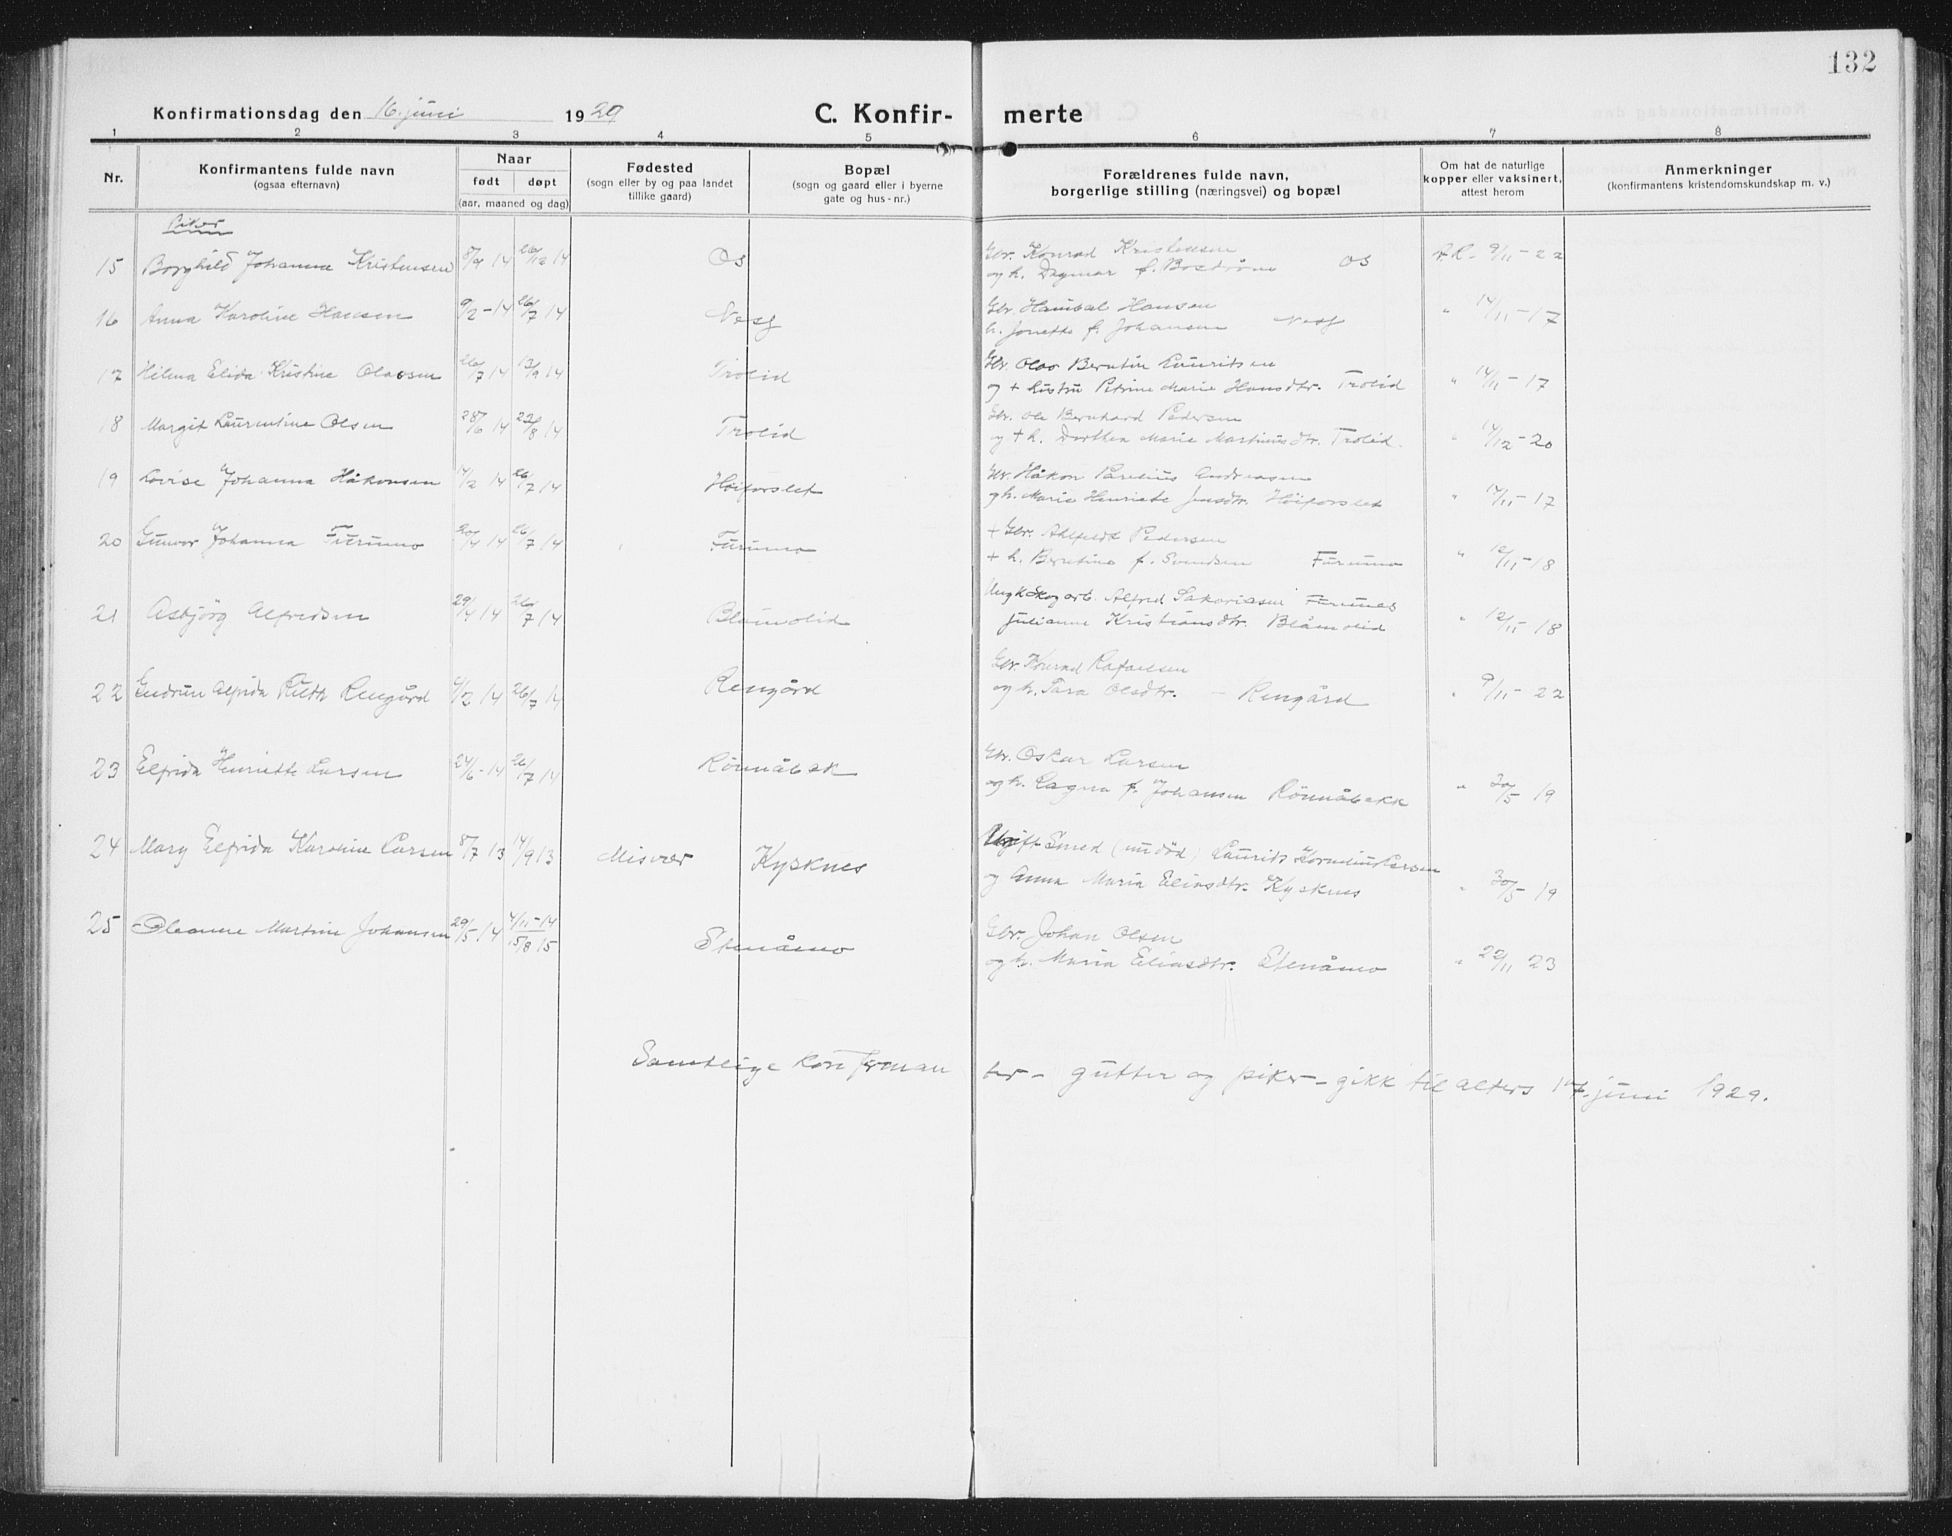 132
Konfirmationsdag den 16. juni 1929 C. Konfir- merte
1 2 3 4 5 6 7 8
Nr. Konfirmantens fulde navn (ogsaa efternavn) Naar født døpt (aar, maaned og dag) Fødested (sogn eller by og paa landet tillike gaard) Bopæl (sogn og gaard eller i byerne gate og hus-nr.) Forældrenes fulde navn, borgerlige stilling (næringsvei) og bopæl Om hat de naturlige kopper eller vaksinert, attest herom Anmerkninger (konfirmantens kristendomskundskap m. v.)
Piker
15 Borghild Johanna Kristensen 8/9 14 26/12 14 Os Gbr. Konrad Kristensen
og h. Dagmar f. Os 9/11-22
16 Anna Karoline Hansen 9/2-14 26/7 14 Nesg Gbr. Hanibal Hansen
h. Jonette f. Johansen Nesg " 14/11-17
17 Hilma Elida Kristine Olavsen 26/7 14 13/9 14 Trolid Gbr. Olav Berntin Lauritsen
og + hustru Petrine Marie Hansdtr. Trolid " 14/11-17
18 Margit Laurentine Olsen 28/6 14 23/8 14 Trolid Gbr. Ole Bernhard Pedersen
og + h. Dorthea Marie Martinusdtr. Trolid. " 14/12-20
19 Lovise Johanna Håkonsen 14/2 14 26/7 14 Høiforslet Gbr. Håkon Parelius Andreasen
og h. Marie Henriette Jensdtr. Høiforslet " 14/11-17
20 Gunvor Johanna Furumo 20/4 14 26/7 14 Furumo + Gbr. Ahlfeldt Pedersen
+ h. Berntine f. Svendsen Furumo " 12/11-18
21 Asbjørg Alfredsen 29/4 14 26/7 14 Blåmolid Ungk. Skogarb. Alfred Sakariasen Furunes
Julianne Kristiansdtr. Blåmolid " 12/11-18
22 Gudrun Alfrida Ruth Rengård 4/2 14 26/7 14 Rengård Gbr. Konrad Rafaelsen
og h. Sara Olsdtr. - Rengård " 9/11-22
23 Elfrida Henriette Larsen 24/6-14 26/7 14 Rönnåbek Gbr. Oskar Larsen
og h. Ragna f. Johansen Rönnåbekk " 30/5 19
24 Mary Elfrida Karoline Larsen 8/7 13 14/9 13 Misvær Kysknes Ugift Smed (nu død) Laurits Kornelius Larsen
og Anna Maria Eliasdtr. Kysknes " 30/5-19
25 Oleanne Martine Johansen 29/5-14 4/11-14 15/8 15 Stenåmo Gbr. Johan Olsen
og h. Maria Eliasdtr. Stenåmo " 22/11 23
Samtlige konfirman ter - gutter og piker - gikk til alters 17. juni 1929.